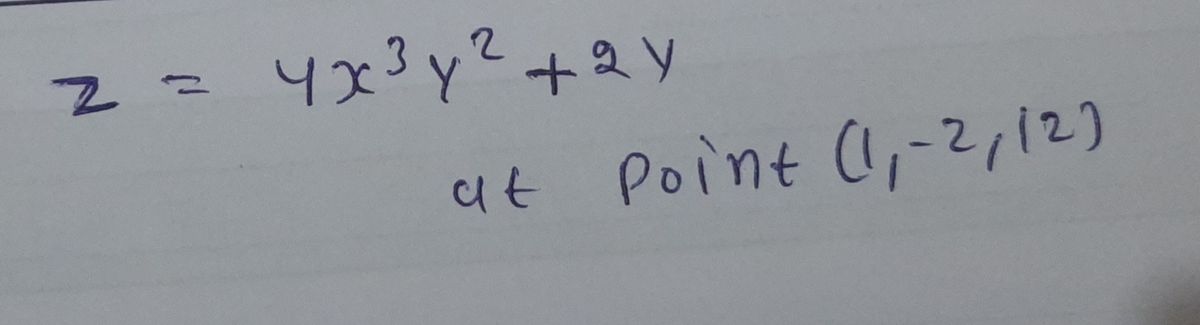 z = 4x³y² + 2y
at point (1,-2,12)